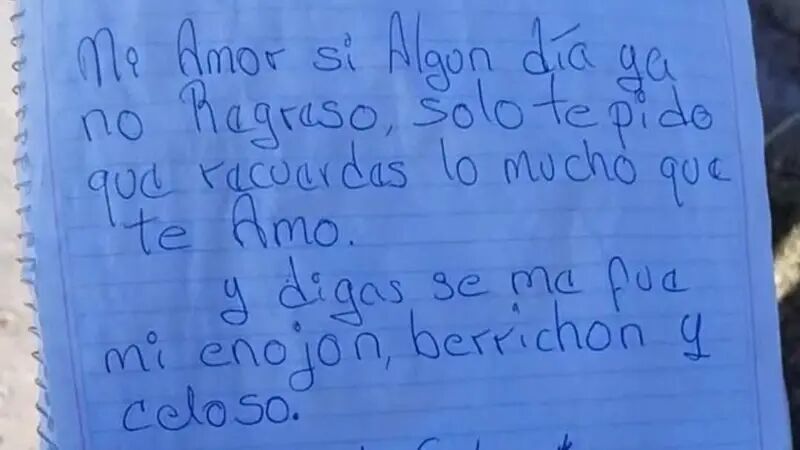 Mi Amor si Algun día ya
no Regreso, solo te pido
que recuerdes lo mucho que
te Amo.
y digas se me fue
mi enojon, berrichon y
celoso.